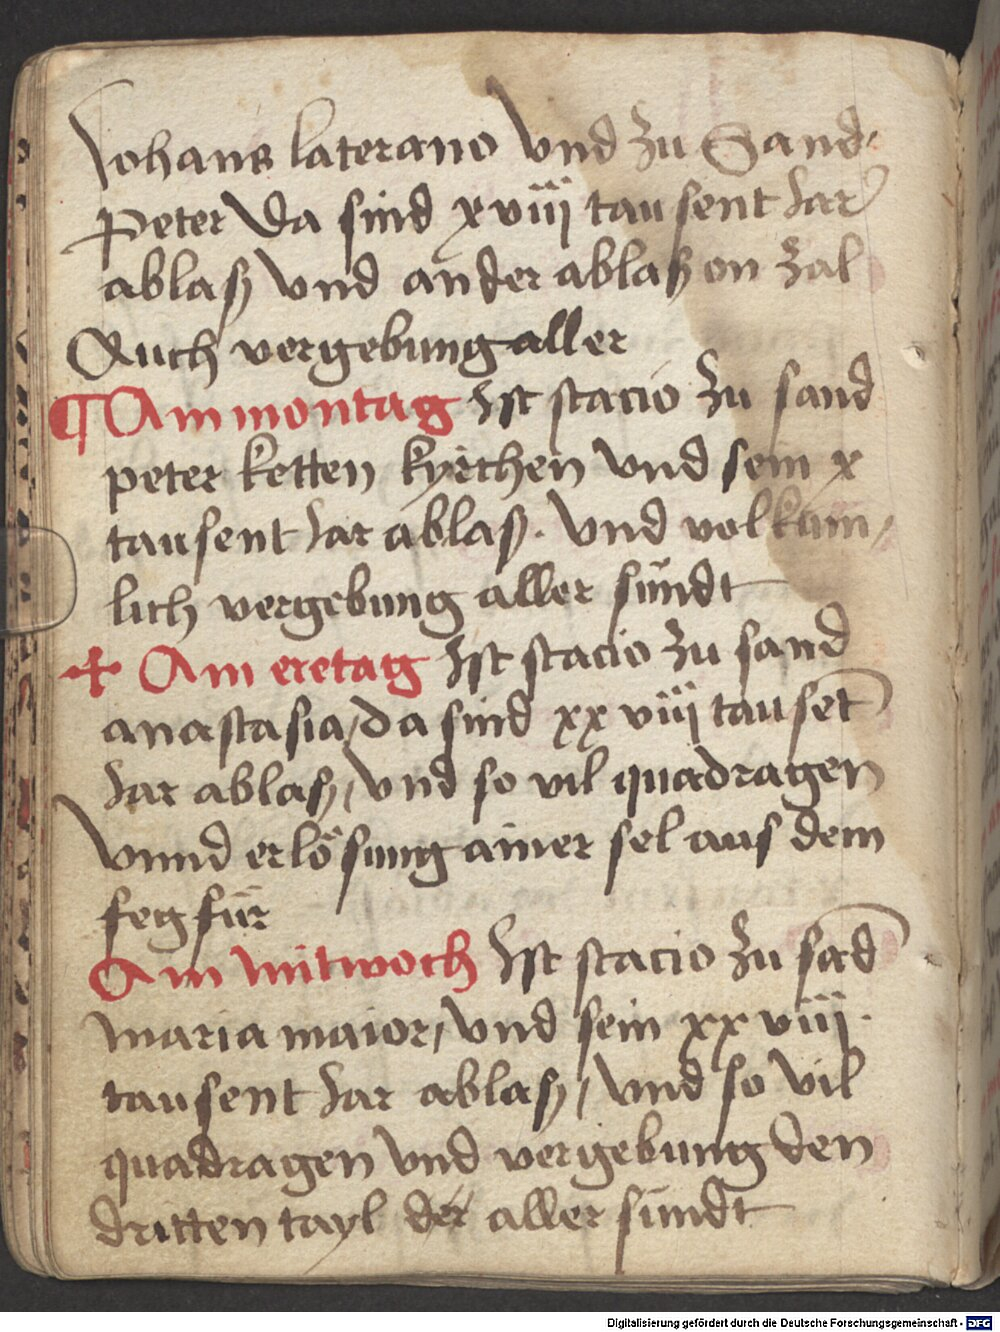 Johans laterano Vnd zu Sand
Peter Da sind xviij tausent Jar
ablas Vnd ander ablas on zal
Auch vergebung aller
¶ Am montag Ist stacio zu sand
peter ketten kyrchen Vnd sein x
tausent Jar ablas. Vnd volkum/
lich vergebung aller sündt
✢ Am eretag Ist stacio zu sand
anastasia/ Da sind xxviij tauset
Jar ablas/ Vnd so vil quadragen
Vnnd erlösung ainer sel aus dem
fegfür
Am mitwoch Ist stacio zu sad
maria maior/ Vnd sein xxviij.
tausent Jar ablas/ Vnd so vil
quadragen Vnd vergebung den
dritten tayl der aller sündt
Digitalisierung gefördert durch die Deutsche Forschungsgemeinschaft - DFG